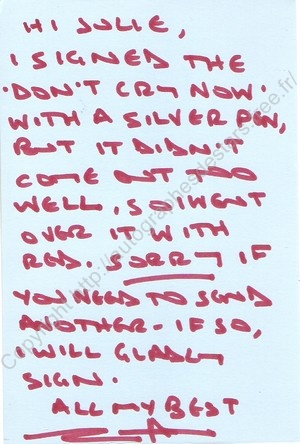 HI JULIE,
I SIGNED THE
'DON'T CRY NOW'
WITH A SILVER PEN,
BUT IT DIDN'T
COME OUT TOO
WELL, SO I WENT
OVER IT WITH
RED. SORRY IF
YOU NEED TO SEND
ANOTHER - IF SO,
I WILL GLADLY
SIGN.
ALL MY BEST
Copyright http://autographesdestars.free.fr/